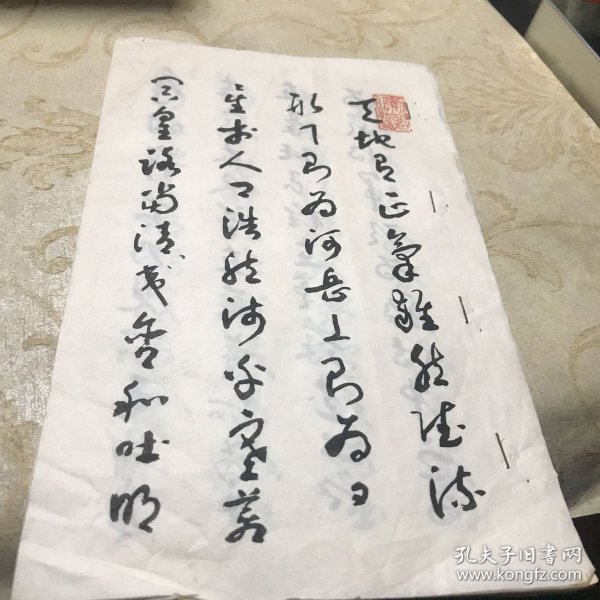 天地有正氣雜然賦流
形下則為河岳上則為日
星於人曰浩然沛乎塞蒼
冥皇路當清夷含和吐明
孔夫子旧书网
www.kongfz.com